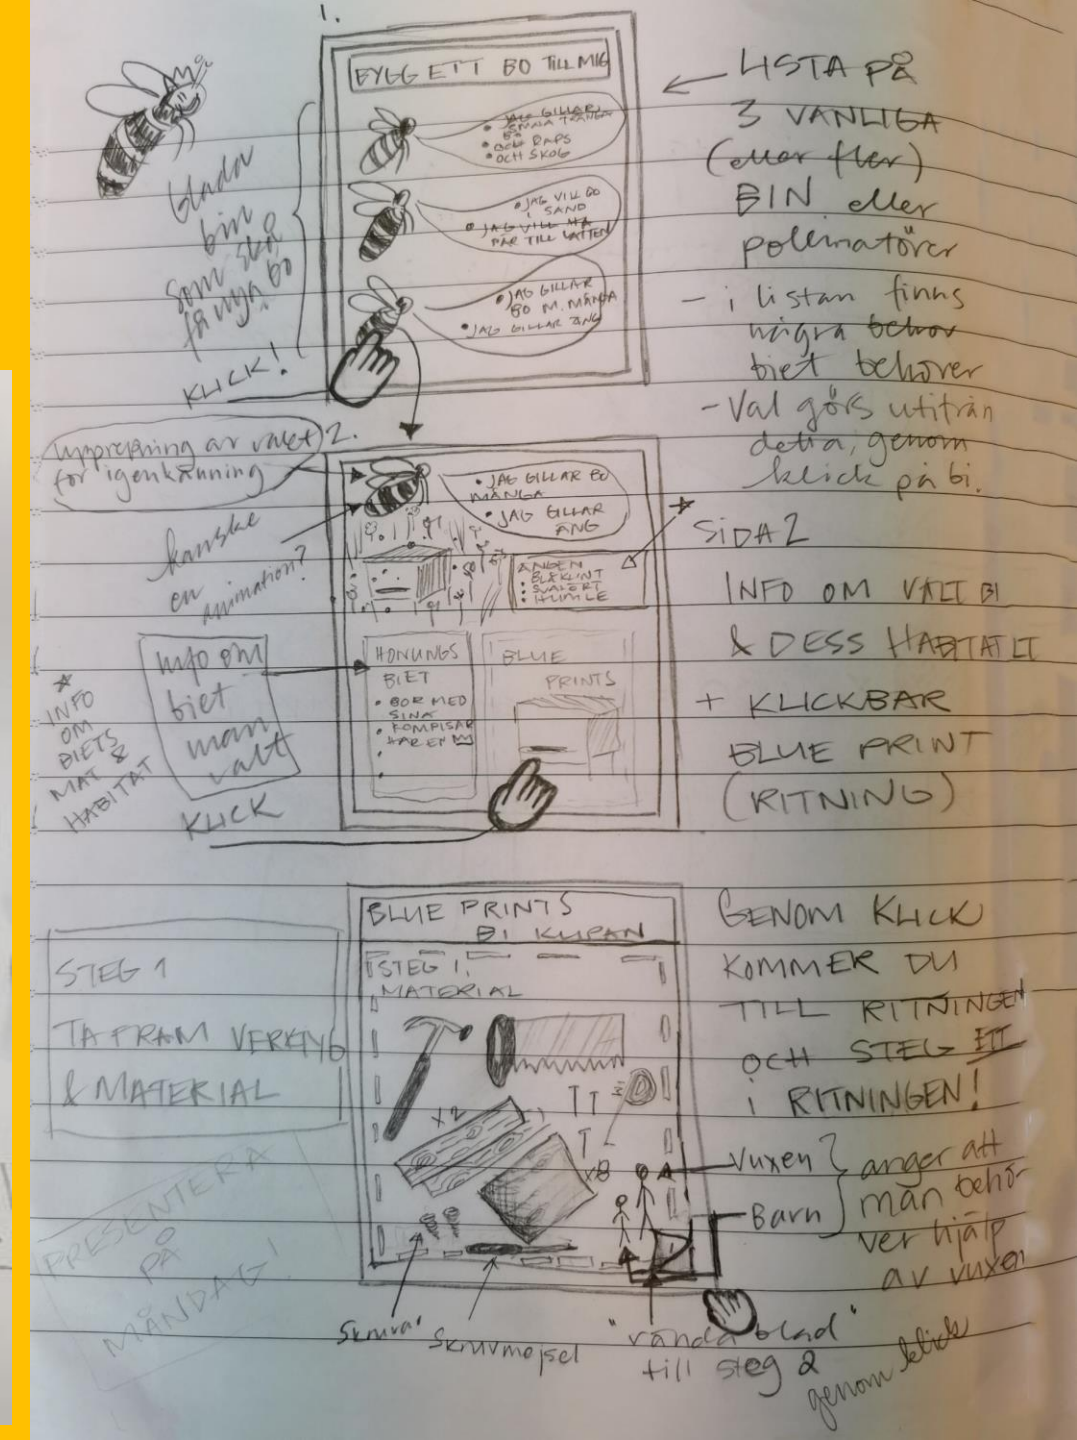 1.
BYGG ETT BO TILL MIG
• JAG GILLAR
SMÅ TRÅNGA
BO
• OCH RAPS
• OCH SKOG
• JAG VILL BO
I SAND
• JAG VILL HA
NÄR TILL VATTEN
• JAG GILLAR
BO M. MÅNGA
• JAG GILLAR ÄNG
glada
bin
som ska
få nya bo
KLICK!
LISTA PÅ
3 VANLIGA
(eller fler)
BIN eller
pollinatörer
- i listan finns
några behov
biet behöver
- Val görs utifrån
detta, genom
klick på bi.
Upprepning av valet
för igenkänning
2.
kanske
en
animation?
• JAG GILLAR BO
MÅNGA
• JAG GILLAR
ÄNG
ÄNGEN
• BLÅKLINT
•
• HUMLE
HONUNGS
BIET
• BOR MED
SINA
• KOMPISAR
HAR EN
BLUE
PRINTS
info om
biet
man
valt
INFO
OM
BIETS
MAT &
HABITAT
KLICK
SIDA 2
INFO OM VALT BI
& DESS HABITAT
+ KLICKBAR
BLUE PRINT
(RITNING)
BLUE PRINTS
BI KUPAN
STEG 1.
MATERIAL
X2
X8
STEG 1
TA FRAM VERKTYG
& MATERIAL
PRESENTERA
PÅ
MÅNDAG!
GENOM KLICK
KOMMER DU
TILL RITNINGEN
OCH STEG ETT
i RITNINGEN!
Vuxen
Barn
anger att
man behö-
ver hjälp
av vuxen
2
Skruvar
Skruvmejsel
"vända blad"
till steg 2
genom klick